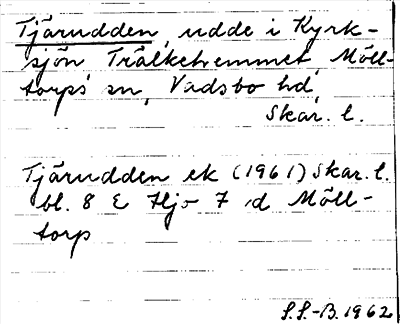 Tjärudden, udde i Kyrk-
sjön Trälkehemmet, Möll-
torps sn, Vadsbo hd,
Skar. l.
Tjärudden ek (1961) Skar. l.
bl. 8 E Hjo 7 d Möll-
torp
S.S.-B. 1962